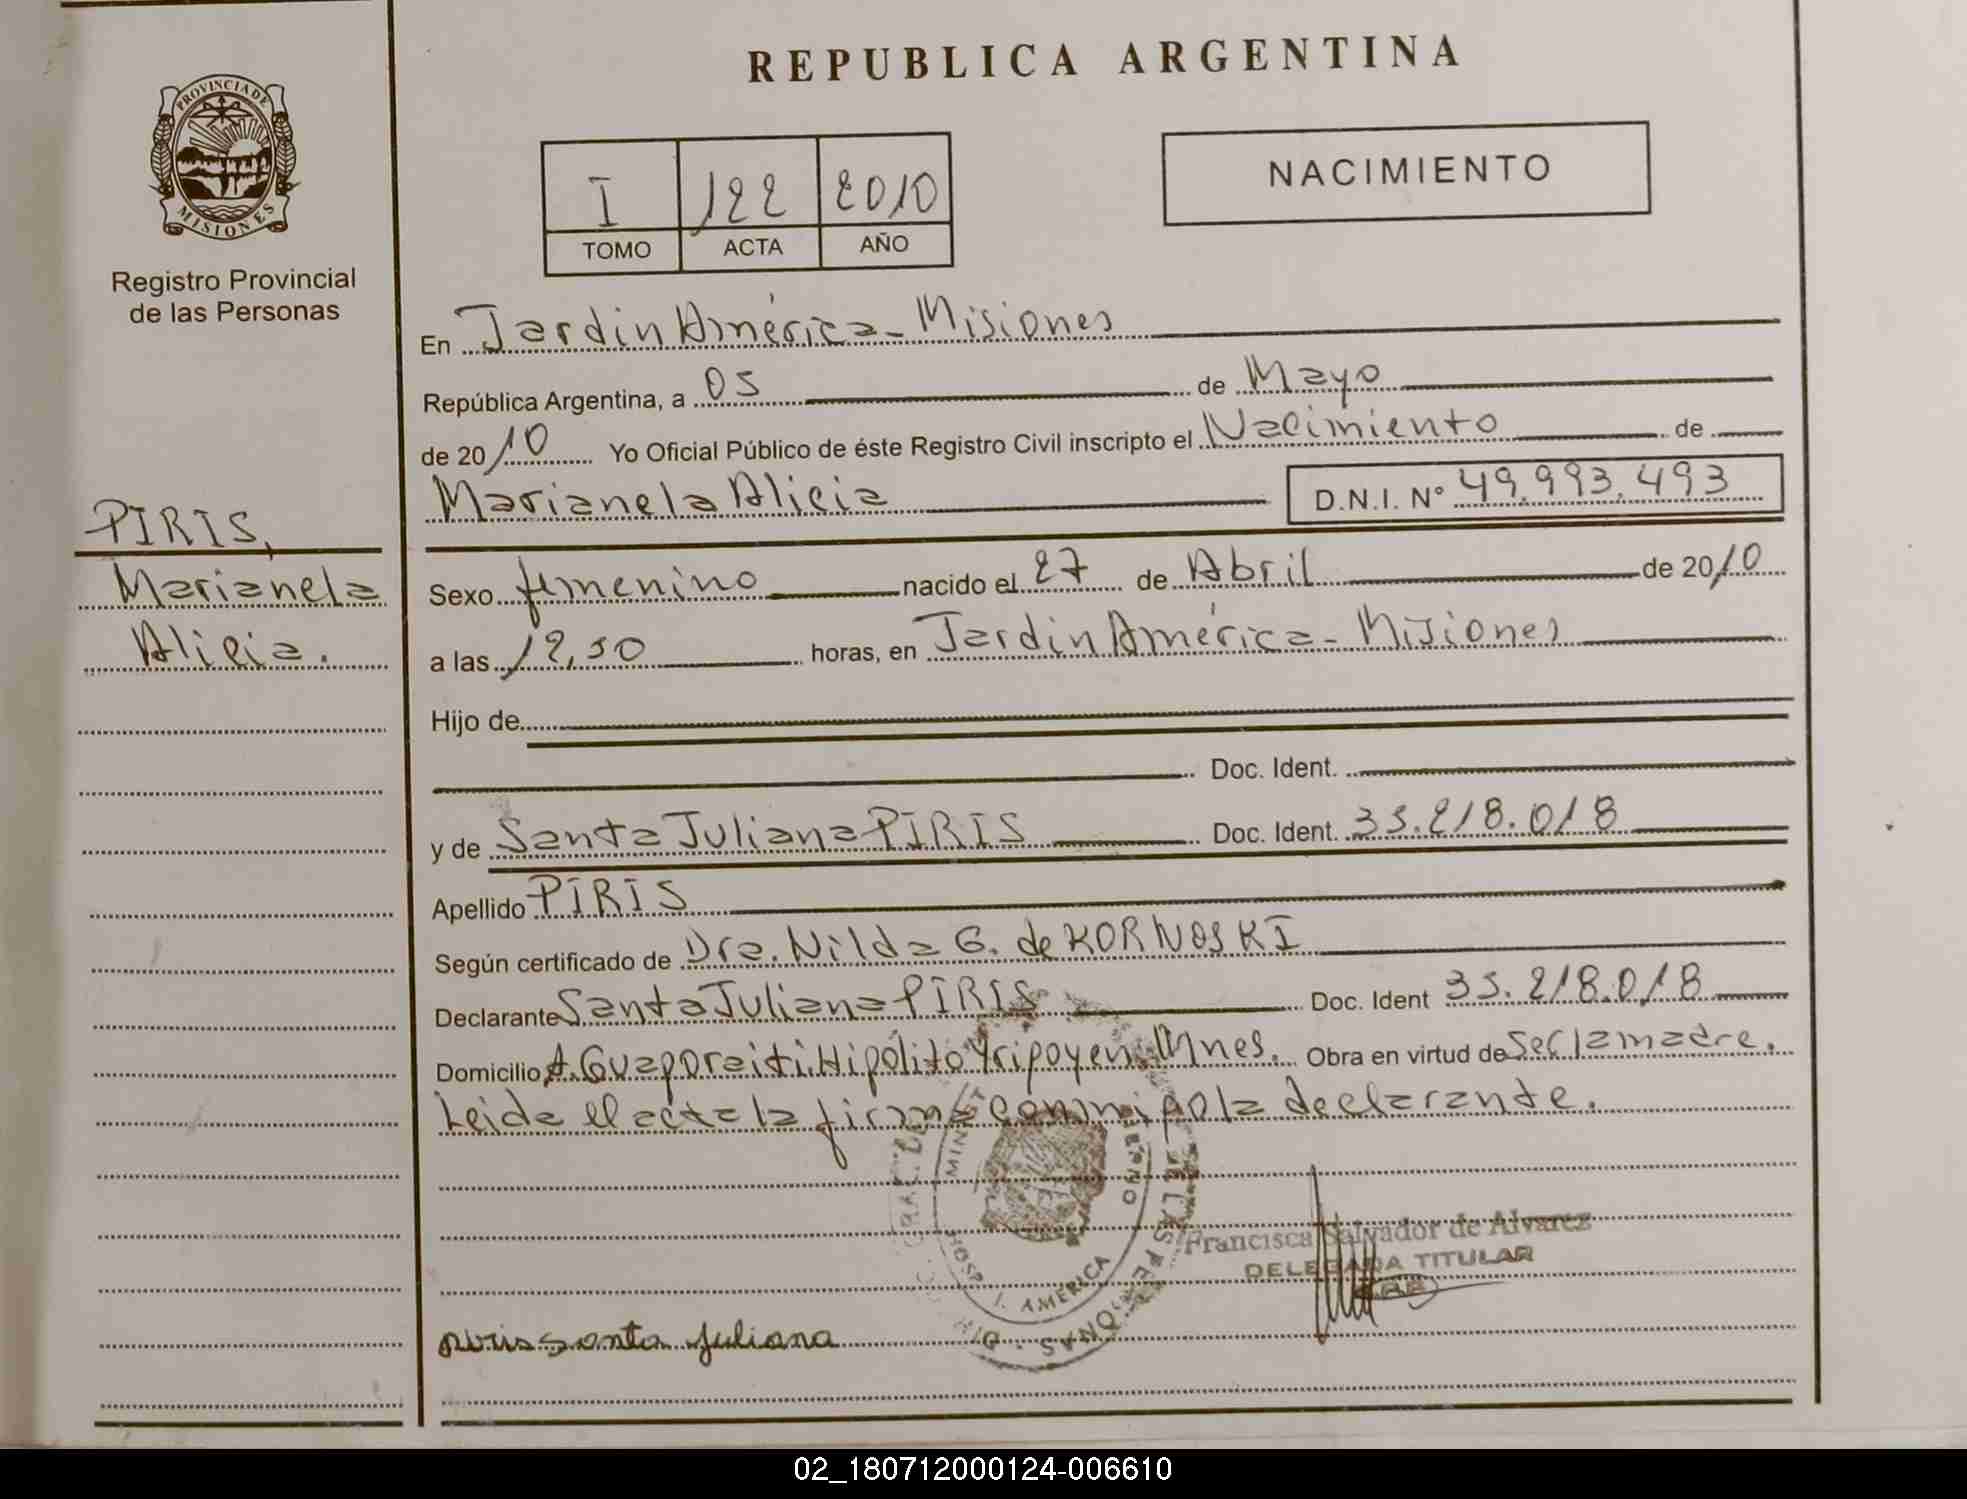 REPUBLICA ARGENTINA
PROVINCIA DE
MISIONES
Registro Provincial
de las Personas
I 122 2010
TOMO ACTA AÑO
NACIMIENTO
En Jardín América - Misiones
República Argentina, a 05 de Mayo
de 2010 Yo Oficial Público de éste Registro Civil inscripto el Nacimiento de
Marianela Alicia D.N.I. N° 49.993.493
PIRIS,
Marianela
Alicia.
Sexo femenino nacido el 27 de Abril de 2010
a las 12,50 horas, en Jardín América - Misiones
Hijo de
Doc. Ident.
y de Santa Juliana PIRIS Doc. Ident. 35.218.018
Apellido PIRIS
Según certificado de Dra. Nilda G. de KORNOSKI
Declarante Santa Juliana PIRIS Doc. Ident 35.218.018
Domicilio A. Guaporaiti. Hipólito Yripoyen. Mnes. Obra en virtud de ser la madre.
Leida el acta la firma conmigo la declarante.
Francisca Salvador de Alvarez
DELEGADA TITULAR
piris santa juliana
AMERICA
02_180712000124-006610